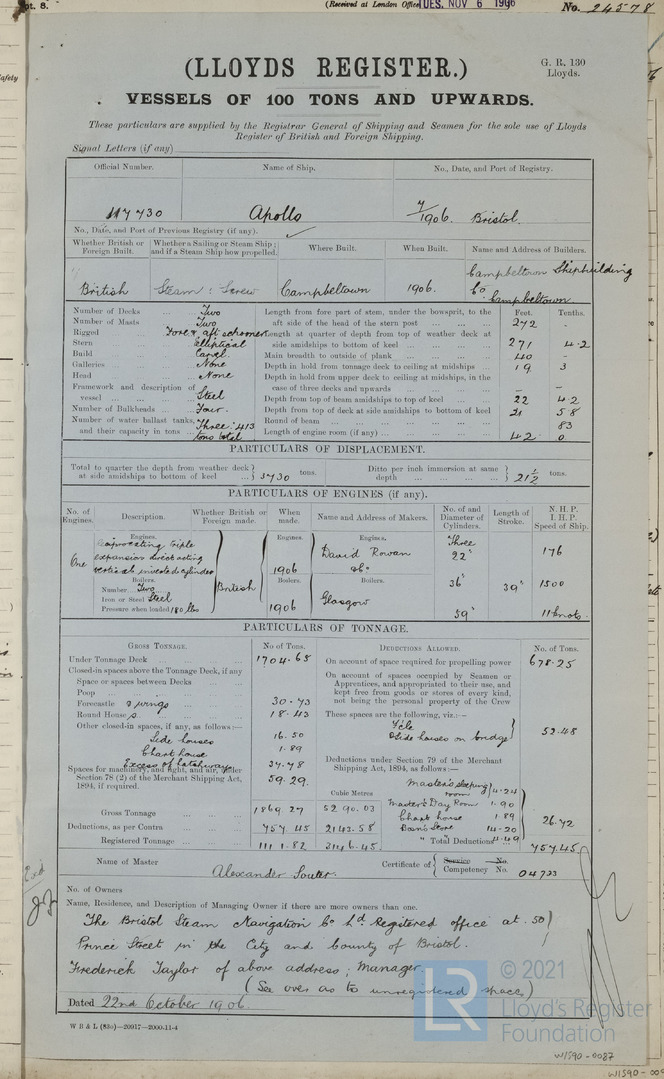 pt. 8.
(Received at London Office TUES. NOV 6 1906
No. 24578
(LLOYDS REGISTER.)
G. R, 130
Lloyds.
VESSELS OF 100 TONS AND UPWARDS.
These particulars are supplied by the Registrar General of Shipping and Seamen for the sole use of Lloyds
Register of British and Foreign Shipping.
Signal Letters (if any)
Official Number. Name of Ship. No., Date, and Port of Registry.
117730 Apollo 7/1906. Bristol.
No., Date, and Port of Previous Registry (if any).
Whether British or Foreign Built. Whether a Sailing or Steam Ship; and if a Steam Ship how propelled. Where Built. When Built. Name and Address of Builders.
British Steam: Screw Campbeltown 1906. Campbeltown Shipbuilding Co. Campbeltown.
Number of Decks Two
Number of Masts Two
Rigged Fore & aft schooner
Stern elliptical
Build Carvel.
Galleries None
Head None
Framework and description of vessel Steel
Number of Bulkheads Four.
Number of water ballast tanks, and their capacity in tons Three: 413 tons total
Feet. Tenths.
Length from fore part of stem, under the bowsprit, to the aft side of the head of the stern post 272 -
Length at quarter of depth from top of weather deck at side amidships to bottom of keel 271 42
Main breadth to outside of plank 40 -
Depth in hold from tonnage deck to ceiling at midships 19 3
Depth in hold from upper deck to ceiling at midships, in the case of three decks and upwards - -
Depth from top of beam amidships to top of keel 22 42
Depth from top of deck at side amidships to bottom of keel 21 58
Round of beam 83
Length of engine room (if any) 42 0
PARTICULARS OF DISPLACEMENT.
Total to quarter the depth from weather deck at side amidships to bottom of keel 5730 tons.
Ditto per inch immersion at same depth 21½ tons.
PARTICULARS OF ENGINES (if any).
No. of Engines. Description. Whether British or Foreign made. When made. Name and Address of Makers. No. of and Diameter of Cylinders. Length of Stroke. N. H. P. I. H. P. Speed of Ship.
Engines. Engines. Engines.
One reciprocating Triple expansion direct acting vertical inverted cylinder British 1906 David Rowan & Co. Three 22" 36" 59" 39" 176 1500 11 knots.
Boilers. Boilers. Boilers.
Number Two
Iron or Steel Steel
Pressure when loaded 180 lbs
1906 Glasgow
PARTICULARS OF TONNAGE.
GROSS TONNAGE. No of Tons.
Under Tonnage Deck 1704.65
Closed-in spaces above the Tonnage Deck, if any
Space or spaces between Decks
Poop
Forecastle & wings 30.73
Round House s. 18.43
Other closed-in spaces, if any, as follows:—
Side houses 16.50
Chart house 1.89
Excess of hatchways 37.78
Spaces for machinery, and light, and air, under Section 78 (2) of the Merchant Shipping Act, 1894, if required. 59.29.
Cubic Metres
Gross Tonnage 1869.27 5290.03
Deductions, as per Contra 757.45 2143.58
Registered Tonnage 1111.82 3146.45.
DEDUCTIONS ALLOWED. No. of Tons.
On account of space required for propelling power 678.25
On account of spaces occupied by Seamen or Apprentices, and appropriated to their use, and kept free from goods or stores of every kind, not being the personal property of the Crew
These spaces are the following, viz:—
F'cle
Side houses on bridge 52.48
Deductions under Section 79 of the Merchant Shipping Act, 1894, as follows:—
Master's sleeping room 4.24
Master's Day Room 1.90
Chart house 1.89
Bosn's Store 14.20
4.49
26.72
Total Deductions 757.45
Name of Master Alexander Souter.
Certificate of Service No. Competency No. 04723
No. of Owners
Name, Residence, and Description of Managing Owner if there are more owners than one.
The Bristol Steam Navigation Co Ld. Registered office at 50
Prince Street in the City and County of Bristol.
Frederick Taylor of above address; Manager.
(See over as to unregistered space)
Dated 22nd October 1906.
W B & L (83o)—20917—2000-11-4
LR © 2021
Lloyd's Register
Foundation
W1590-0087